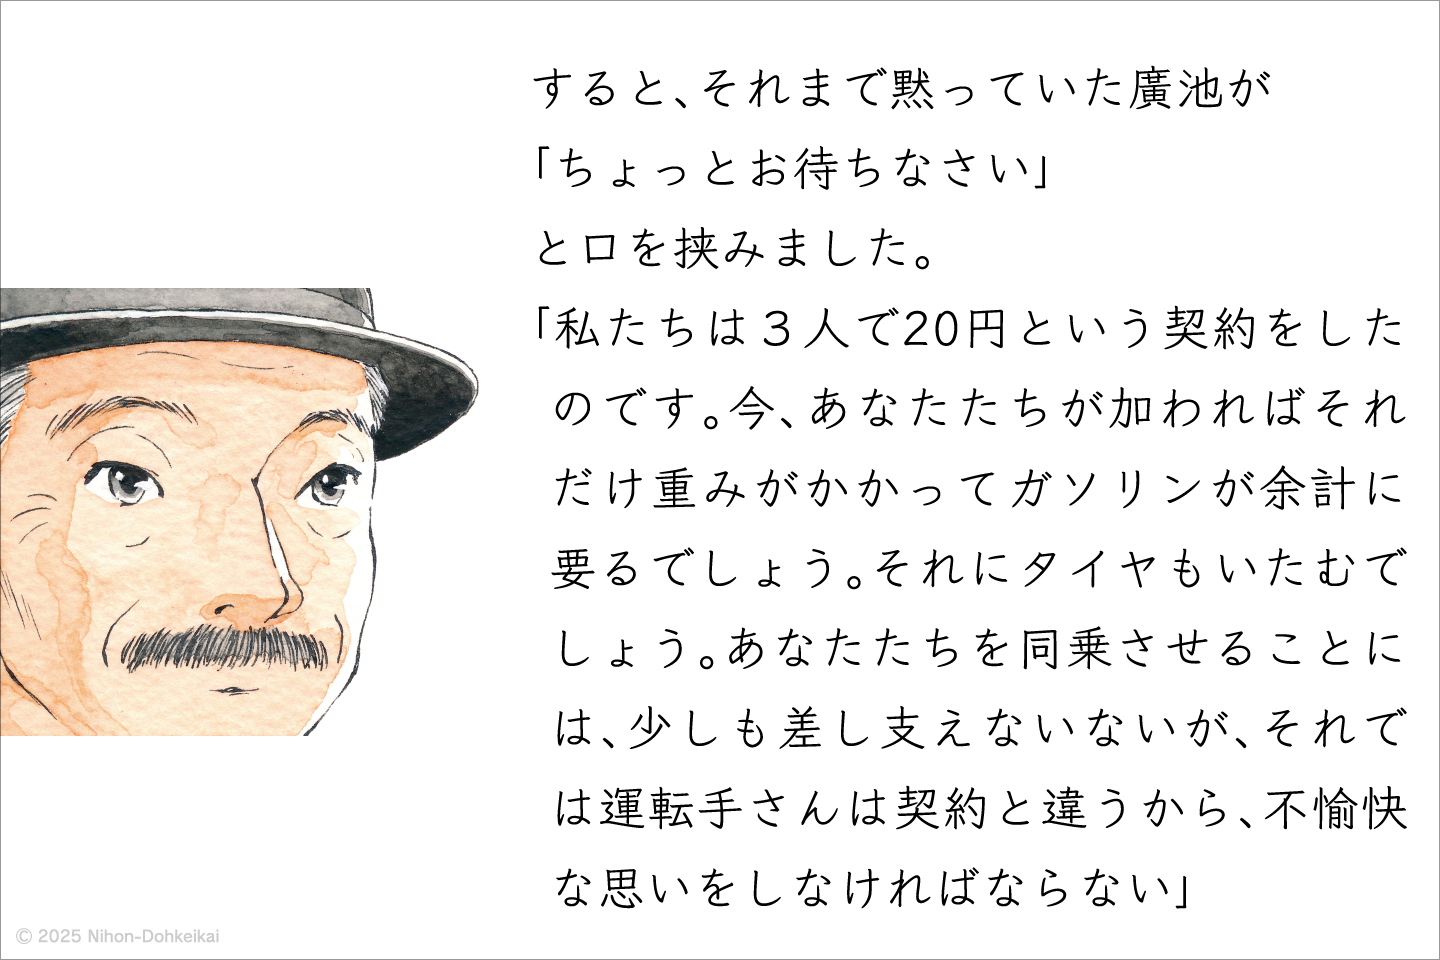 すると、それまで黙っていた廣池が
「ちょっとお待ちなさい」
と口を挟みました。
「私たちは３人で20円という契約をした
のです。今、あなたたちが加わればそれ
だけ重みがかかってガソリンが余計に
要るでしょう。それにタイヤもいたむで
しょう。あなたたちを同乗させることに
は、少しも差し支えないないが、それで
は運転手さんは契約と違うから、不愉快
な思いをしなければならない」
© 2025 Nihon-Dohkeikai